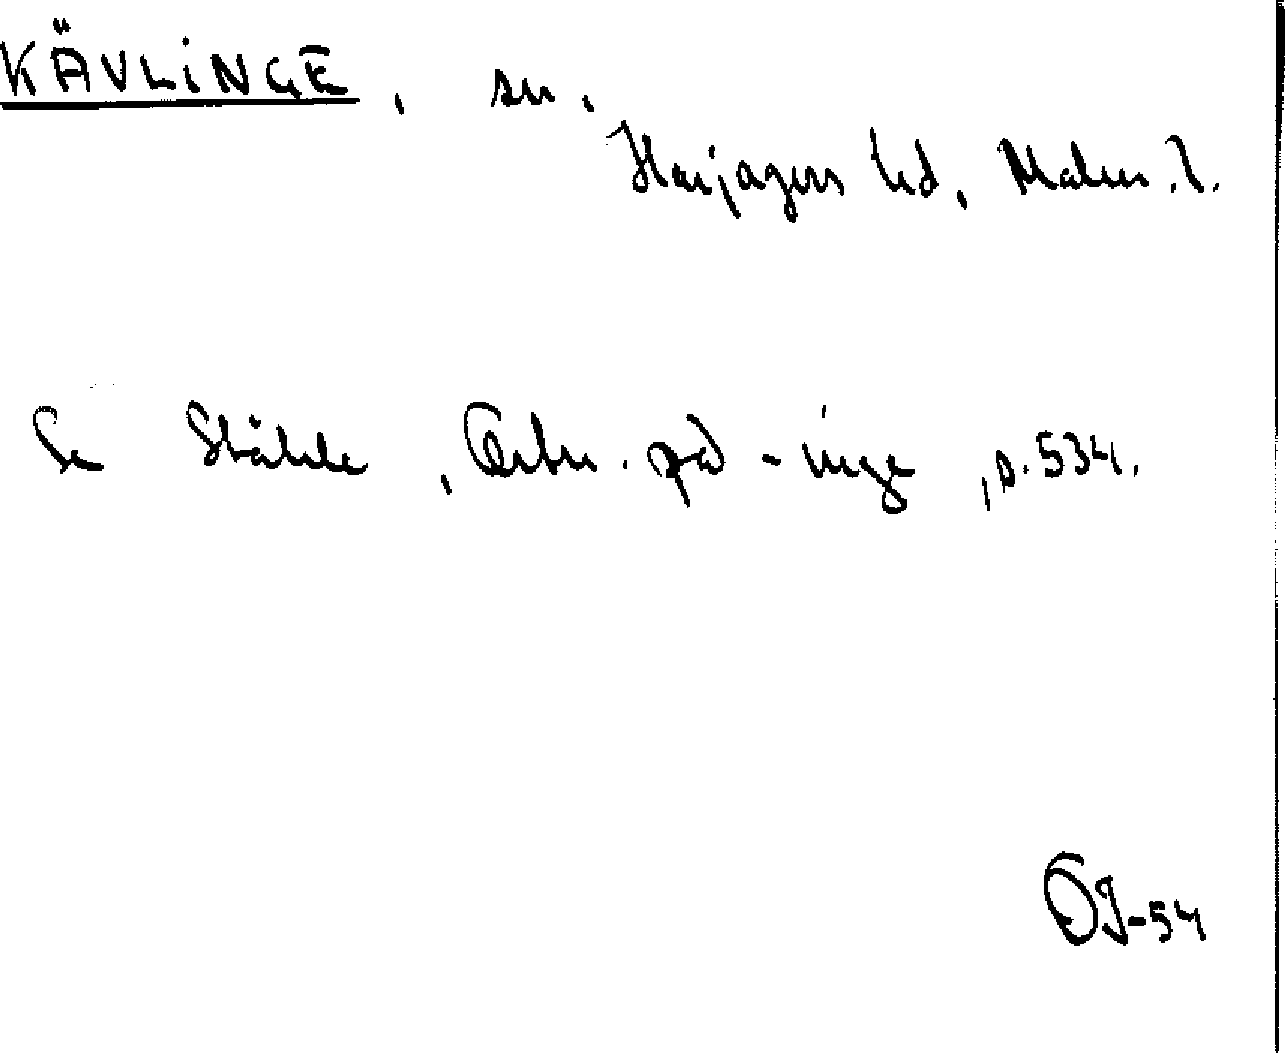 KÄVLINGE, sn,
Harjagers hd, Malm. l.
Se Ståhle, Ortn. på -inge, s. 534.
ÖJ-54